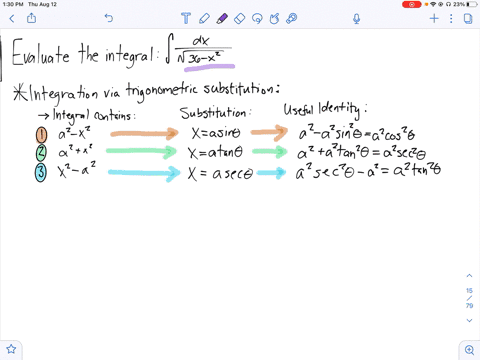 1:30 PM Thu Aug 12 23%
Evaluate the integral: ∫ dx / √(36-x²)
*Integration via trigonometric substitution:
→ Integral contains: Substitution: Useful Identity:
① a²-x² → x=asinθ → a²-a²sin²θ=a²cos²θ
② a²+x² → x=atanθ → a²+a²tan²θ=a²sec²θ
③ x²-a² → x=asecθ → a²sec²θ-a²=a²tan²θ
15
/
79